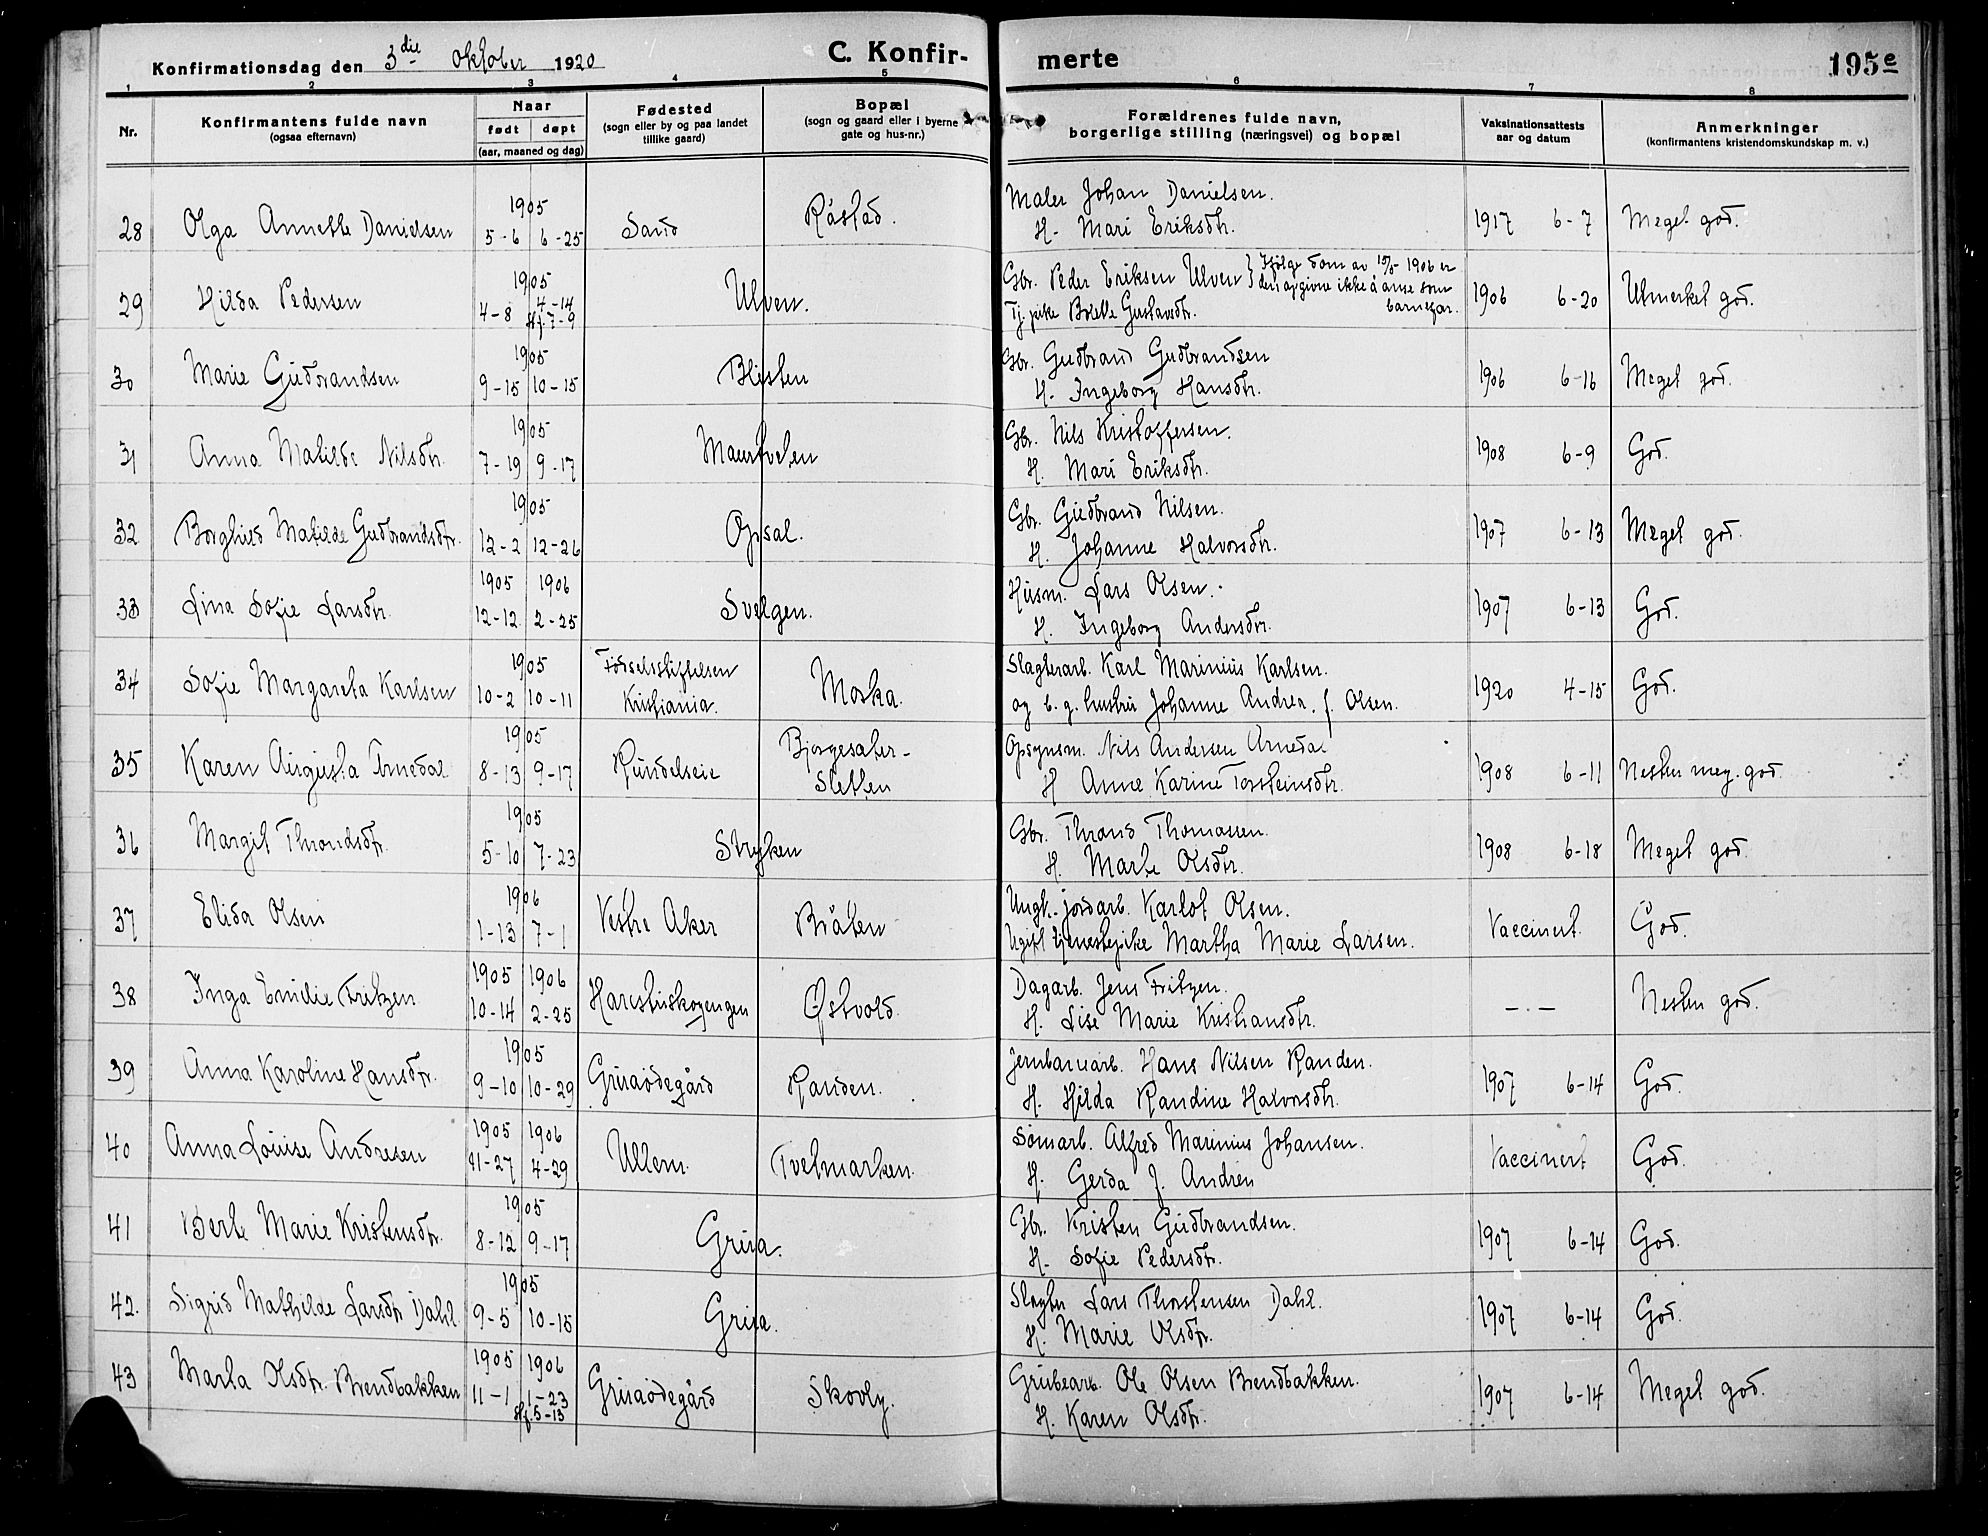 Konfirmationsdag den 3die Oktober 1920
C. Konfir-
merte
195e
1 2 3 4 5 6 7 8
Nr.
Konfirmantens fulde navn
(ogsaa efternavn)
Naar
født døpt
(aar, maaned og dag)
Fødested
(sogn eller by og paa landet
tillike gaard)
Bopæl
(sogn og gaard eller i byerne
gate og hus-nr.)
Forældrenes fulde navn,
borgerlige stilling (næringsvei) og bopæl
Vaksinationsattests
aar og datum
Anmerkninger
(konfirmantens kristendomskundskap m. v.)
28 Olga Annette Danielsen 1905 5-6 6-25 Sand Råstad.
Maler Johan Danielsen.
H. Mari Eriksdtr. 1917 6-7 Meget god.
29 Hilda Pedersen 1905 4-8 4-14 Hf. 7-9 Ulven.
Gbr. Peder Eriksen Ulven } Ifølge dom av 15/5 1906 er
den opgivne ikke å anse som
barnefar.
Tj. pike Bolette Gustavsdtr. 1906 6-20 Utmerket god.
30 Marie Gudbrandsen 1905 9-15 10-15 Blisten
Gbr. Gudbrand Gudbrandsen
H. Ingeborg Hansdtr. 1906 6-16 Meget god.
31 Anna Matilde Nilsdtr. 1905 7-19 9-17 Maurtveten
Gbr. Nils Kristoffersen.
H. Mari Eriksdtr. 1908 6-9 God.
32 Borghild Matilde Gudbrandsdtr. 1905 12-2 12-26 Opsal.
Gbr. Gudbrand Nilsen.
H. Johanne Halvorsdtr. 1907 6-13 Meget god.
33 Lina Sofie Larsdtr. 1905 1906 12-12 2-25 Svelgen.
Husm. Lars Olsen.
H. Ingeborg Andersdtr. 1907 6-13 God.
34 Sofie Margareta Karlsen 1905 10-2 10-11 Fødselsstiftelsen
Kristiania. Moska.
Slagterarb. Karl Marinius Karlsen.
og b. g. hustru Johanne Andrea, f. Olsen. 1920 4-15 God.
35 Karen Augusta Arnedal 1905 8-13 9-17 Rundelseie Bjørgesæter-
Sletten
Opsynsm. Nils Andersen Arnedal
H Anne Karine Torsteinsdtr. 1908 6-11 Nesten meg. god.
36 Margit Throndsdtr. 1905 5-10 7-23 Stryken
Gbr. Thrond Thomassen.
H. Marte Olsdtr. 1908 6-18 Meget god.
37 Elida Olsen 1906 1-13 7-1 Vestre Aker Bråten
Ungk. jordarb. Karlot Olsen.
Ugift tjenestepike Martha Marie Larsen. Vaccinert. God.
38 Inga Emilie Fritzen 1905 1906 10-14 2-25 Harestuskogengen Østvold.
Dagarb. Jens Fritzen.
H. Lise Marie Kristiansdtr. — . — Nesten god.
39 Anna Karoline Hansdtr. 1905 9-10 10-29 Gruaødegård Randen.
Jernbanearb. Hans Nilsen Randen.
H. Hilda Randine Halvorsdtr. 1907 6-14 God.
40 Anna Louise Andresen 1905 1906 11-27 4-29 Ullern. Tvetmarken.
Sømarb. Alfred Marinius Johansen.
H. Gerda J. Andrén Vaccinert God.
41 Berte Marie Kristensdtr. 1905 8-12 9-17 Grua.
Gbr. Kristen Gudbrandsen.
H. Sofie Pedersdtr. 1907 6-14 God.
42. Sigrid Mathilde Larsdtr Dahl 1905 9-5 10-15 Grua.
Slagter Lars Thorstensen Dahl.
H. Marie Olsdtr. 1907 6-14 God.
43 Marta Olsdtr. Brendbakken 1905 1906 11-1 1-23 Hf. 5-13 Gruaødegård Skovly.
Grubearb. Ole Olsen Brendbakken.
H. Karen Olsdtr. 1907 6-14 Meget god.